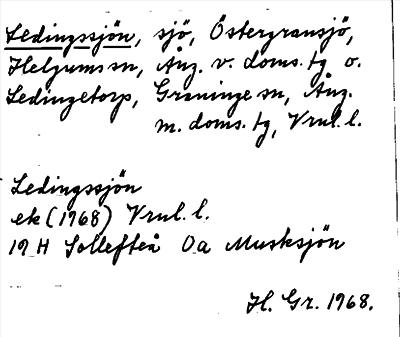 Ledingssjön, sjö, Östergransjö,
Helgums sn, Ång. v. doms. tg o.
Ledingetorp, Graninge sn, Ång.
m. doms. tg, Vrnl. l.
Ledingssjön
ek (1968) Vrnl. l.
19 H Sollefteå Oa Musksjön
H. Gr. 1968.